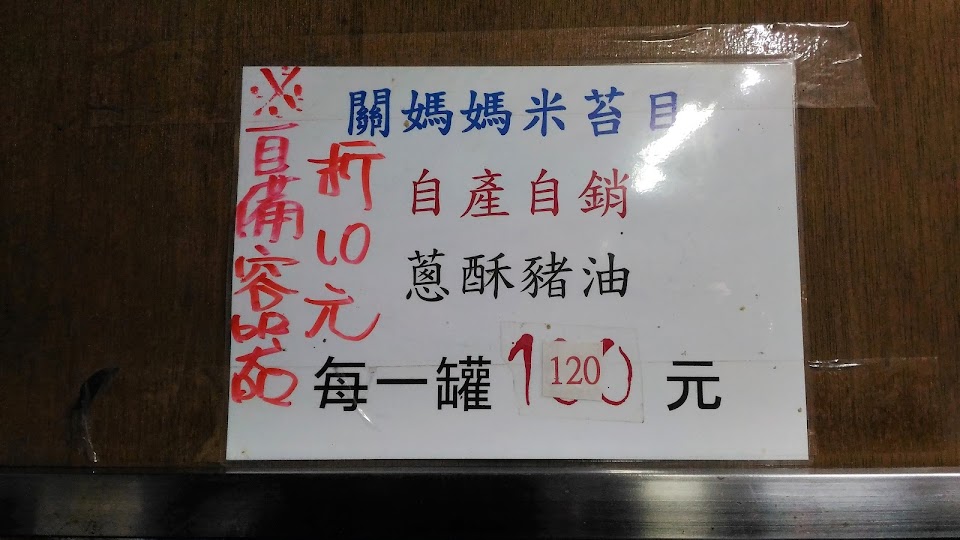 關媽媽米苔目
自產自銷
蔥酥豬油
每一罐 120 元
※自備容器
折10元